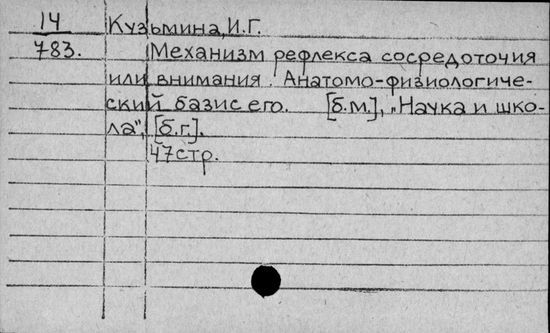 14 Кузьмина, И.Г.
783. Механизм рефлекса сосредоточия
или внимания. Анатомо-физиологиче-
ский базис его. [б.м], „Наука и шко-
ла", [б.г].
47стр.